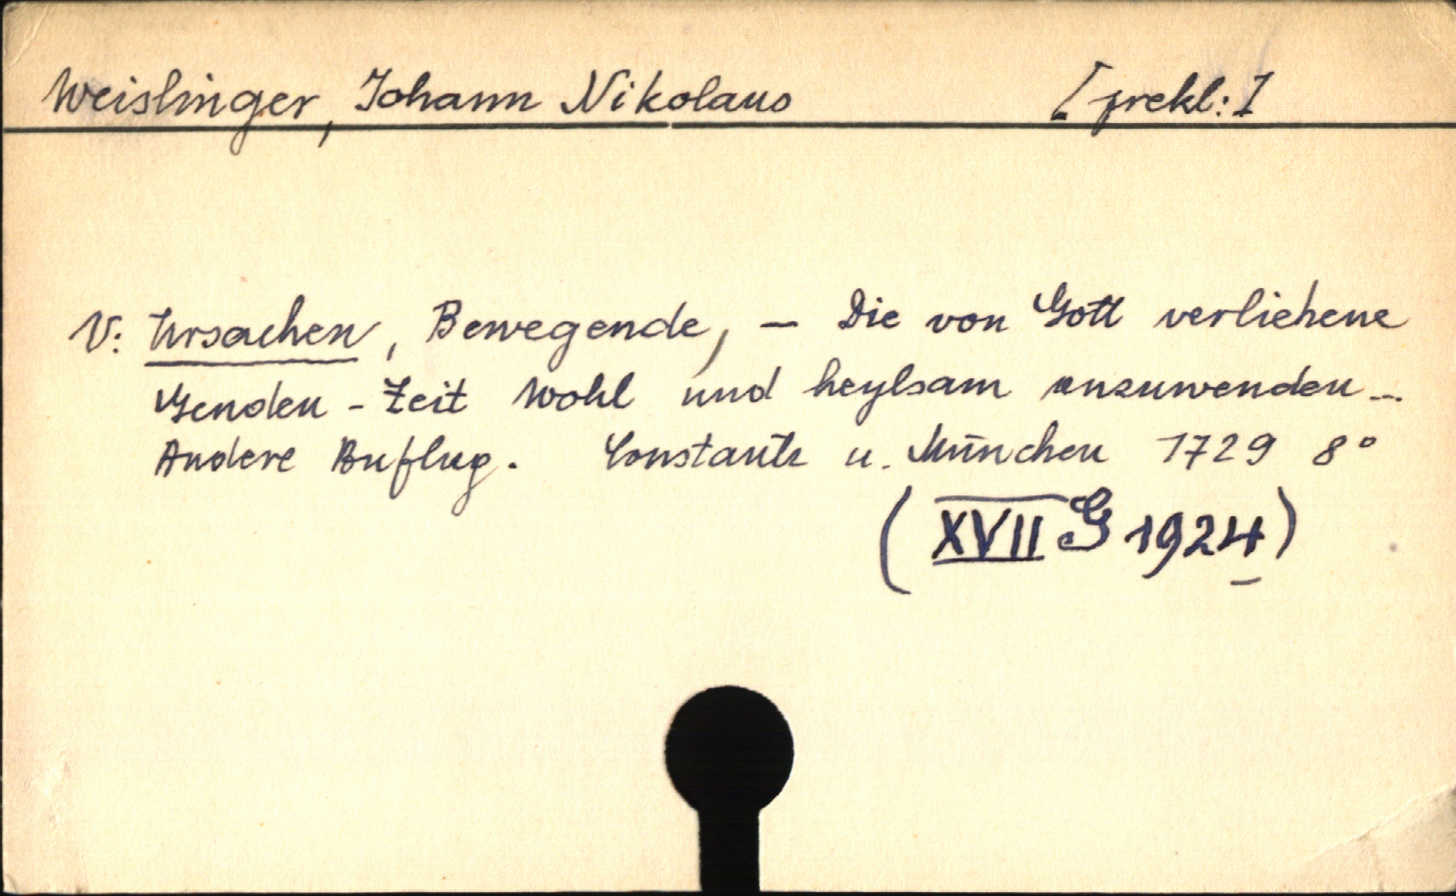 Weislinger, Johann Nikolaus [prekl:]
V: Ursachen, Bewegende, – Die von Gott verliehene
Genden-Zeit wohl und heylsam anzuwenden...
Andere Auflug. Constantz u. München 1729 8°
(XVII G 1924)